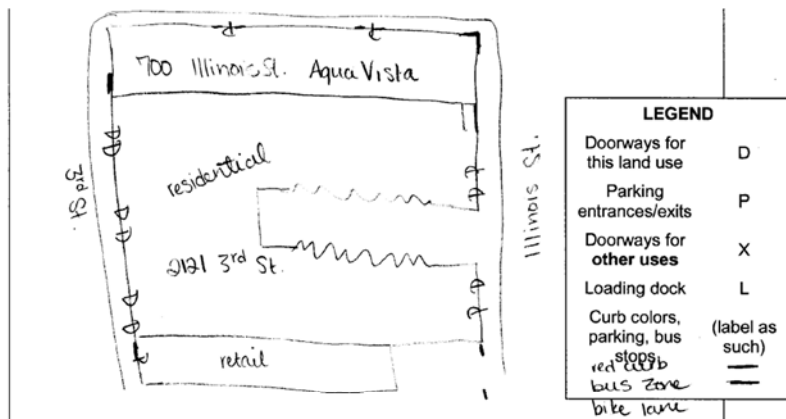 P P
700 Illinois St. Aqua Vista
D
D
residential
3rd St.
Illinois St.
D
D
2121 3rd St.
D
D
retail
P
LEGEND
Doorways for
this land use D
Parking
entrances/exits P
Doorways for
other uses X
Loading dock L
Curb colors,
parking, bus
stops
(label as
such)
red curb
bus zone
bike lane